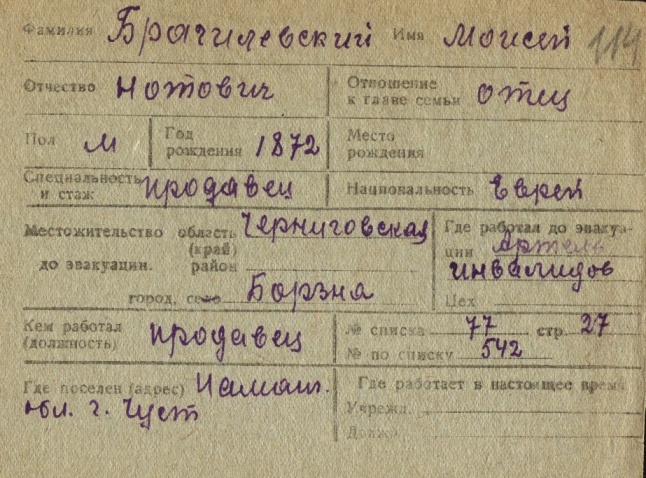 Фамилия Брагилевский Имя Моисей 114
Отчество Нотович Отношение к главе семьи отец
Пол М Год рождения 1872 Место рождения
Специальность и стаж продавец Национальность Еврей
Местожительство область Черниговская Где работал до эвакуа-
(край) ции Артель
до эвакуации. район инвалидов
город, село Борзна Цех
Кем работал (должность) продавец № списка 77 стр. 27
№ по списку 542
Где поселен (адрес) Наманг. Где работает в настоящее время
обл. г. Чуст Учрежд.
Должн.